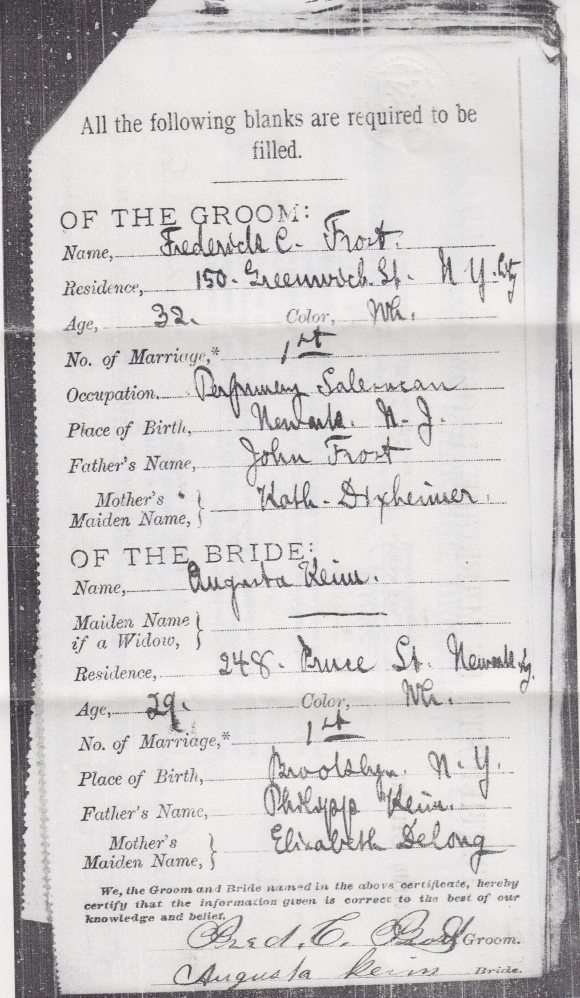 All the following blanks are required to be
filled.
OF THE GROOM:
Name, Frederick C. Frost.
Residence, 150. Greenwich St. N Y. City
Age, 32. Color, Wh.
No. of Marriage,* 1st
Occupation. Perfumery Salesman
Place of Birth, Newark. N. J.
Father's Name, John Frost
Mother's
Maiden Name, Kath.
OF THE BRIDE:
Name, Augusta Keim.
Maiden Name
if a Widow,
Residence, 248. St. Newark
Age, 29. Color, Wh.
No. of Marriage,* 1st
Place of Birth, Brooklyn. N. Y.
Father's Name, Philipp Keim.
Mother's
Maiden Name, Elizabeth Delong
We, the Groom and Bride named in the above certificate, hereby
certify that the information given is correct to the best of our
knowledge and belief.
Fred. C. Frost Groom.
Augusta Keim Bride.